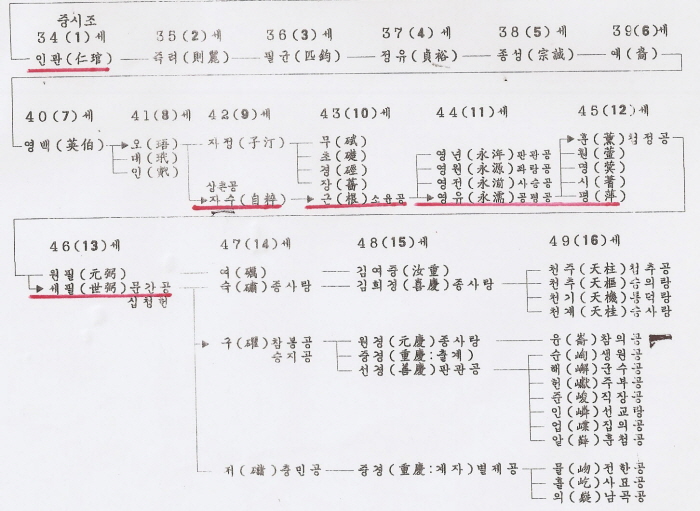 중시조
34 (1) 세 35 (2) 세 36 (3) 세 37 (4) 세 38 (5) 세 39 (6) 세
인관 (仁琯) 즉려 (則麗) 필균 (匹鈞) 정유 (貞裕) 종성 (宗誠) 예 (裔)
40 (7) 세 41 (8) 세 42 (9) 세 43 (10) 세 44 (11) 세 45 (12) 세
영백 (英伯) 오 (珸) 자정 (子汀) 무 (碔) 훈 (薰) 첨정공
대 (玳) 초 (礎) 영년 판관공 원 (萱)
인 경 (硜) 영원 (永源) 좌랑공 명 (蓂)
상촌공 장 영전 사승공 시 (蓍)
자수 (自粹) 근 (根) 소윤공 영유 (永濡) 공평공 평 (萍)
46 (13) 세 47 (14) 세 48 (15) 세 49 (16) 세
원필 (元弼) 여 (礪) 김여중 (汝重) 천주 (天柱) 첨추공
세필 (世弼) 문간공 숙 (磠) 종사랑 김희경 (喜慶) 종사랑 천추 (天樞) 승의랑
십청헌 천기 (天機) 통덕랑
천계 (天桂) 승사랑
구 참봉공 원경 (元慶) 종사랑 융 참의공
승지공 중경 (重慶:출계) 순 (峋) 생원공
선경 (善慶) 판관공 해 (嶰) 군수공
헌 (巘) 주부공
준 (峻) 직장공
인 (嶙) 선교랑
업 (嶪) 집의공
알 훈첨공
저 충민공 중경 (重慶:계자) 별제공 물 (岉) 전한공
흘 (屹) 사묘공
의 (嶷) 남곡공